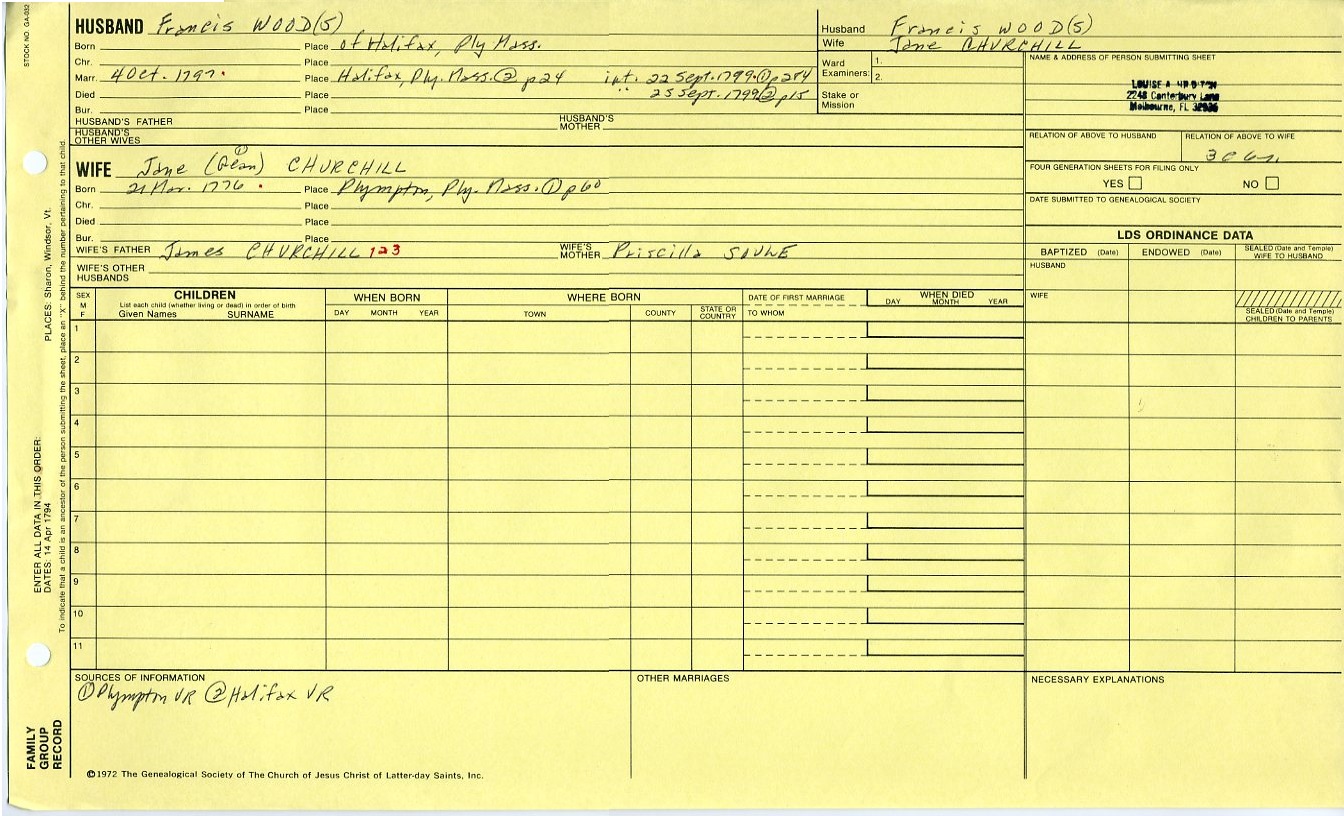 STOCK NO. GA-032
HUSBAND Francis WOOD(S)
Born Place of Halifax, Ply Mass.
Chr. Place
Marr. 4 Oct. 1797. Place Halifax, Ply. Mass. ② p24 int. 22 Sept. 1799. ① p284
" 25 Sept. 1799 ② p15
Died Place
Bur. Place
HUSBAND'S FATHER HUSBAND'S MOTHER
HUSBAND'S OTHER WIVES
WIFE Jane (Gean) ① CHURCHILL
Born 21 Mar. 1776. Place Plympton, Ply. Mass. ① p60
Chr. Place
Died Place
Bur. Place
WIFE'S FATHER James CHURCHILL 123 WIFE'S MOTHER Priscilla SOULE
WIFE'S OTHER HUSBANDS
Husband Francis WOOD(S)
Wife Jane CHURCHILL
Ward Examiners: 1.
2.
Stake or Mission
NAME & ADDRESS OF PERSON SUBMITTING SHEET
LOUISE A
2248 Canterbury Lane
Melbourne, FL
RELATION OF ABOVE TO HUSBAND RELATION OF ABOVE TO WIFE
FOUR GENERATION SHEETS FOR FILING ONLY
YES NO
DATE SUBMITTED TO GENEALOGICAL SOCIETY
LDS ORDINANCE DATA
BAPTIZED (Date) ENDOWED (Date) SEALED (Date and Temple) WIFE TO HUSBAND
HUSBAND
WIFE
SEALED (Date and Temple) CHILDREN TO PARENTS
SEX M F
CHILDREN
List each child (whether living or dead) in order of birth
Given Names SURNAME
WHEN BORN
DAY MONTH YEAR
WHERE BORN
TOWN COUNTY STATE OR COUNTRY
DATE OF FIRST MARRIAGE
TO WHOM
WHEN DIED
DAY MONTH YEAR
1
2
3
4
5
6
7
8
9
10
11
SOURCES OF INFORMATION
① Plympton VR ② Halifax VR
OTHER MARRIAGES
NECESSARY EXPLANATIONS
©1972 The Genealogical Society of The Church of Jesus Christ of Latter-day Saints, Inc.
FAMILY GROUP RECORD
ENTER ALL DATA IN THIS ORDER:
DATES: 14 Apr 1794 PLACES: Sharon, Windsor, Vt.
To indicate that a child is an ancestor of the person submitting the sheet, place an "X" behind the number pertaining to that child.